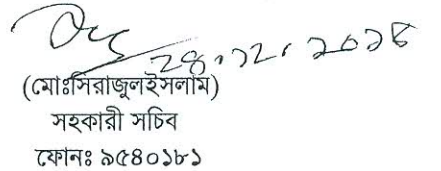 ২৪.১২.২০১৪
(মোঃসিরাজুলইসলাম)
সহকারী সচিব
ফোনঃ ৯৫৪০১৮১